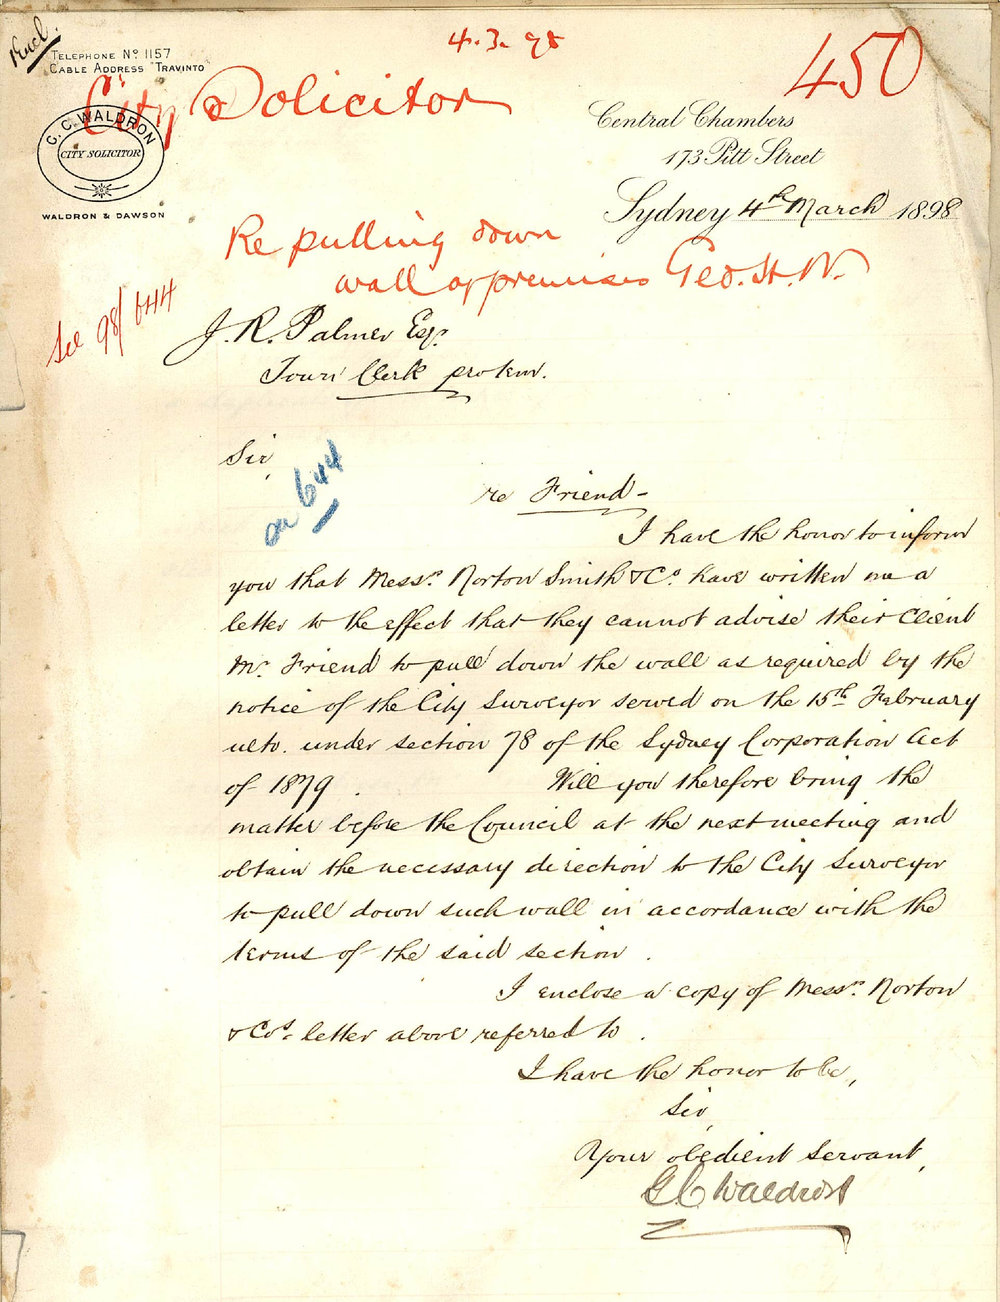 Encl.
4.3.98
450
TELEPHONE Nº 1157
CABLE ADDRESS "TRAVINTO"
City Solicitor
G. C. WALDRON
CITY SOLICITOR
WALDRON & DAWSON
Central Chambers
173 Pitt Street
Sydney 4th March 1898
Re pulling down
wall of premises Geo. St. N.
See 98/644
J. R. Palmer Esqr.
Town Clerk protem.
Sir,
on 644
re Friend-
I have the honor to inform
you that Messrs. Norton Smith & Co. have written me a
letter to the effect that they cannot advise their Client
Mr. Friend to pull down the wall as required by the
notice of the City Surveyor served on the 15th February
ulto. under section 78 of the Sydney Corporation Act
of 1879. Will you therefore bring the
matter before the Council at the next meeting and
obtain the necessary direction to the City Surveyor
to pull down such wall in accordance with the
terms of the said section.
I enclose a copy of Messrs. Norton
& Cos. letter above referred to.
I have the honor to be,
Sir,
Your obedient servant,
G C Waldron